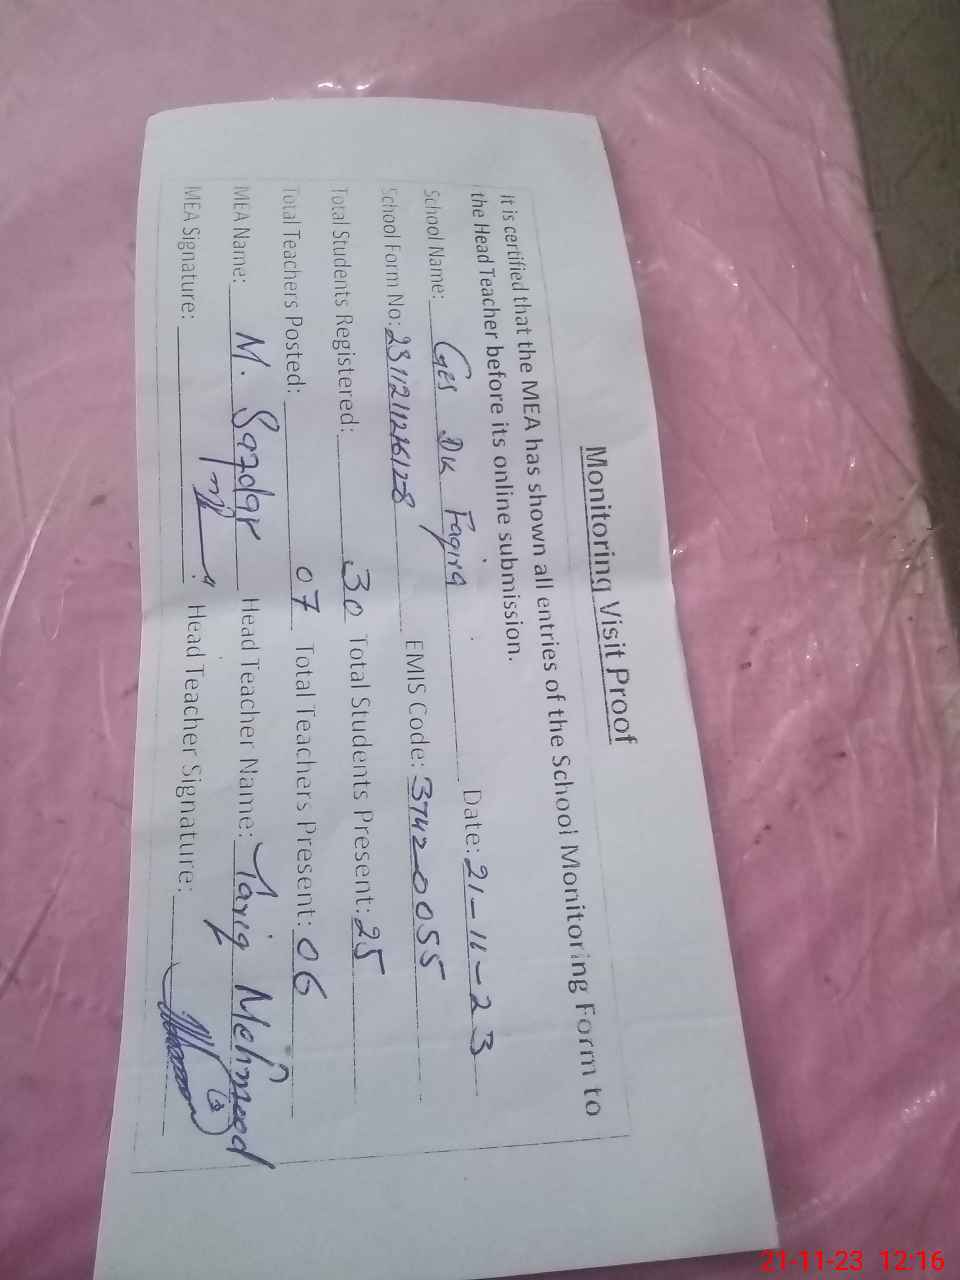 Monitoring Visit Proof
It is certified that the MEA has shown all entries of the School Monitoring Form to
the Head Teacher before its online submission.
School Name: Ges Dk Faqira Date: 21-11-23
School Form No: EMIS Code: 37420055
Total Students Registered: 30 Total Students Present: 25
Total Teachers Posted: 07 Total Teachers Present: 06
MEA Name: M. Safdar Head Teacher Name: Tariq Mehmood
MEA Signature: Head Teacher Signature:
21-11-23 12:16